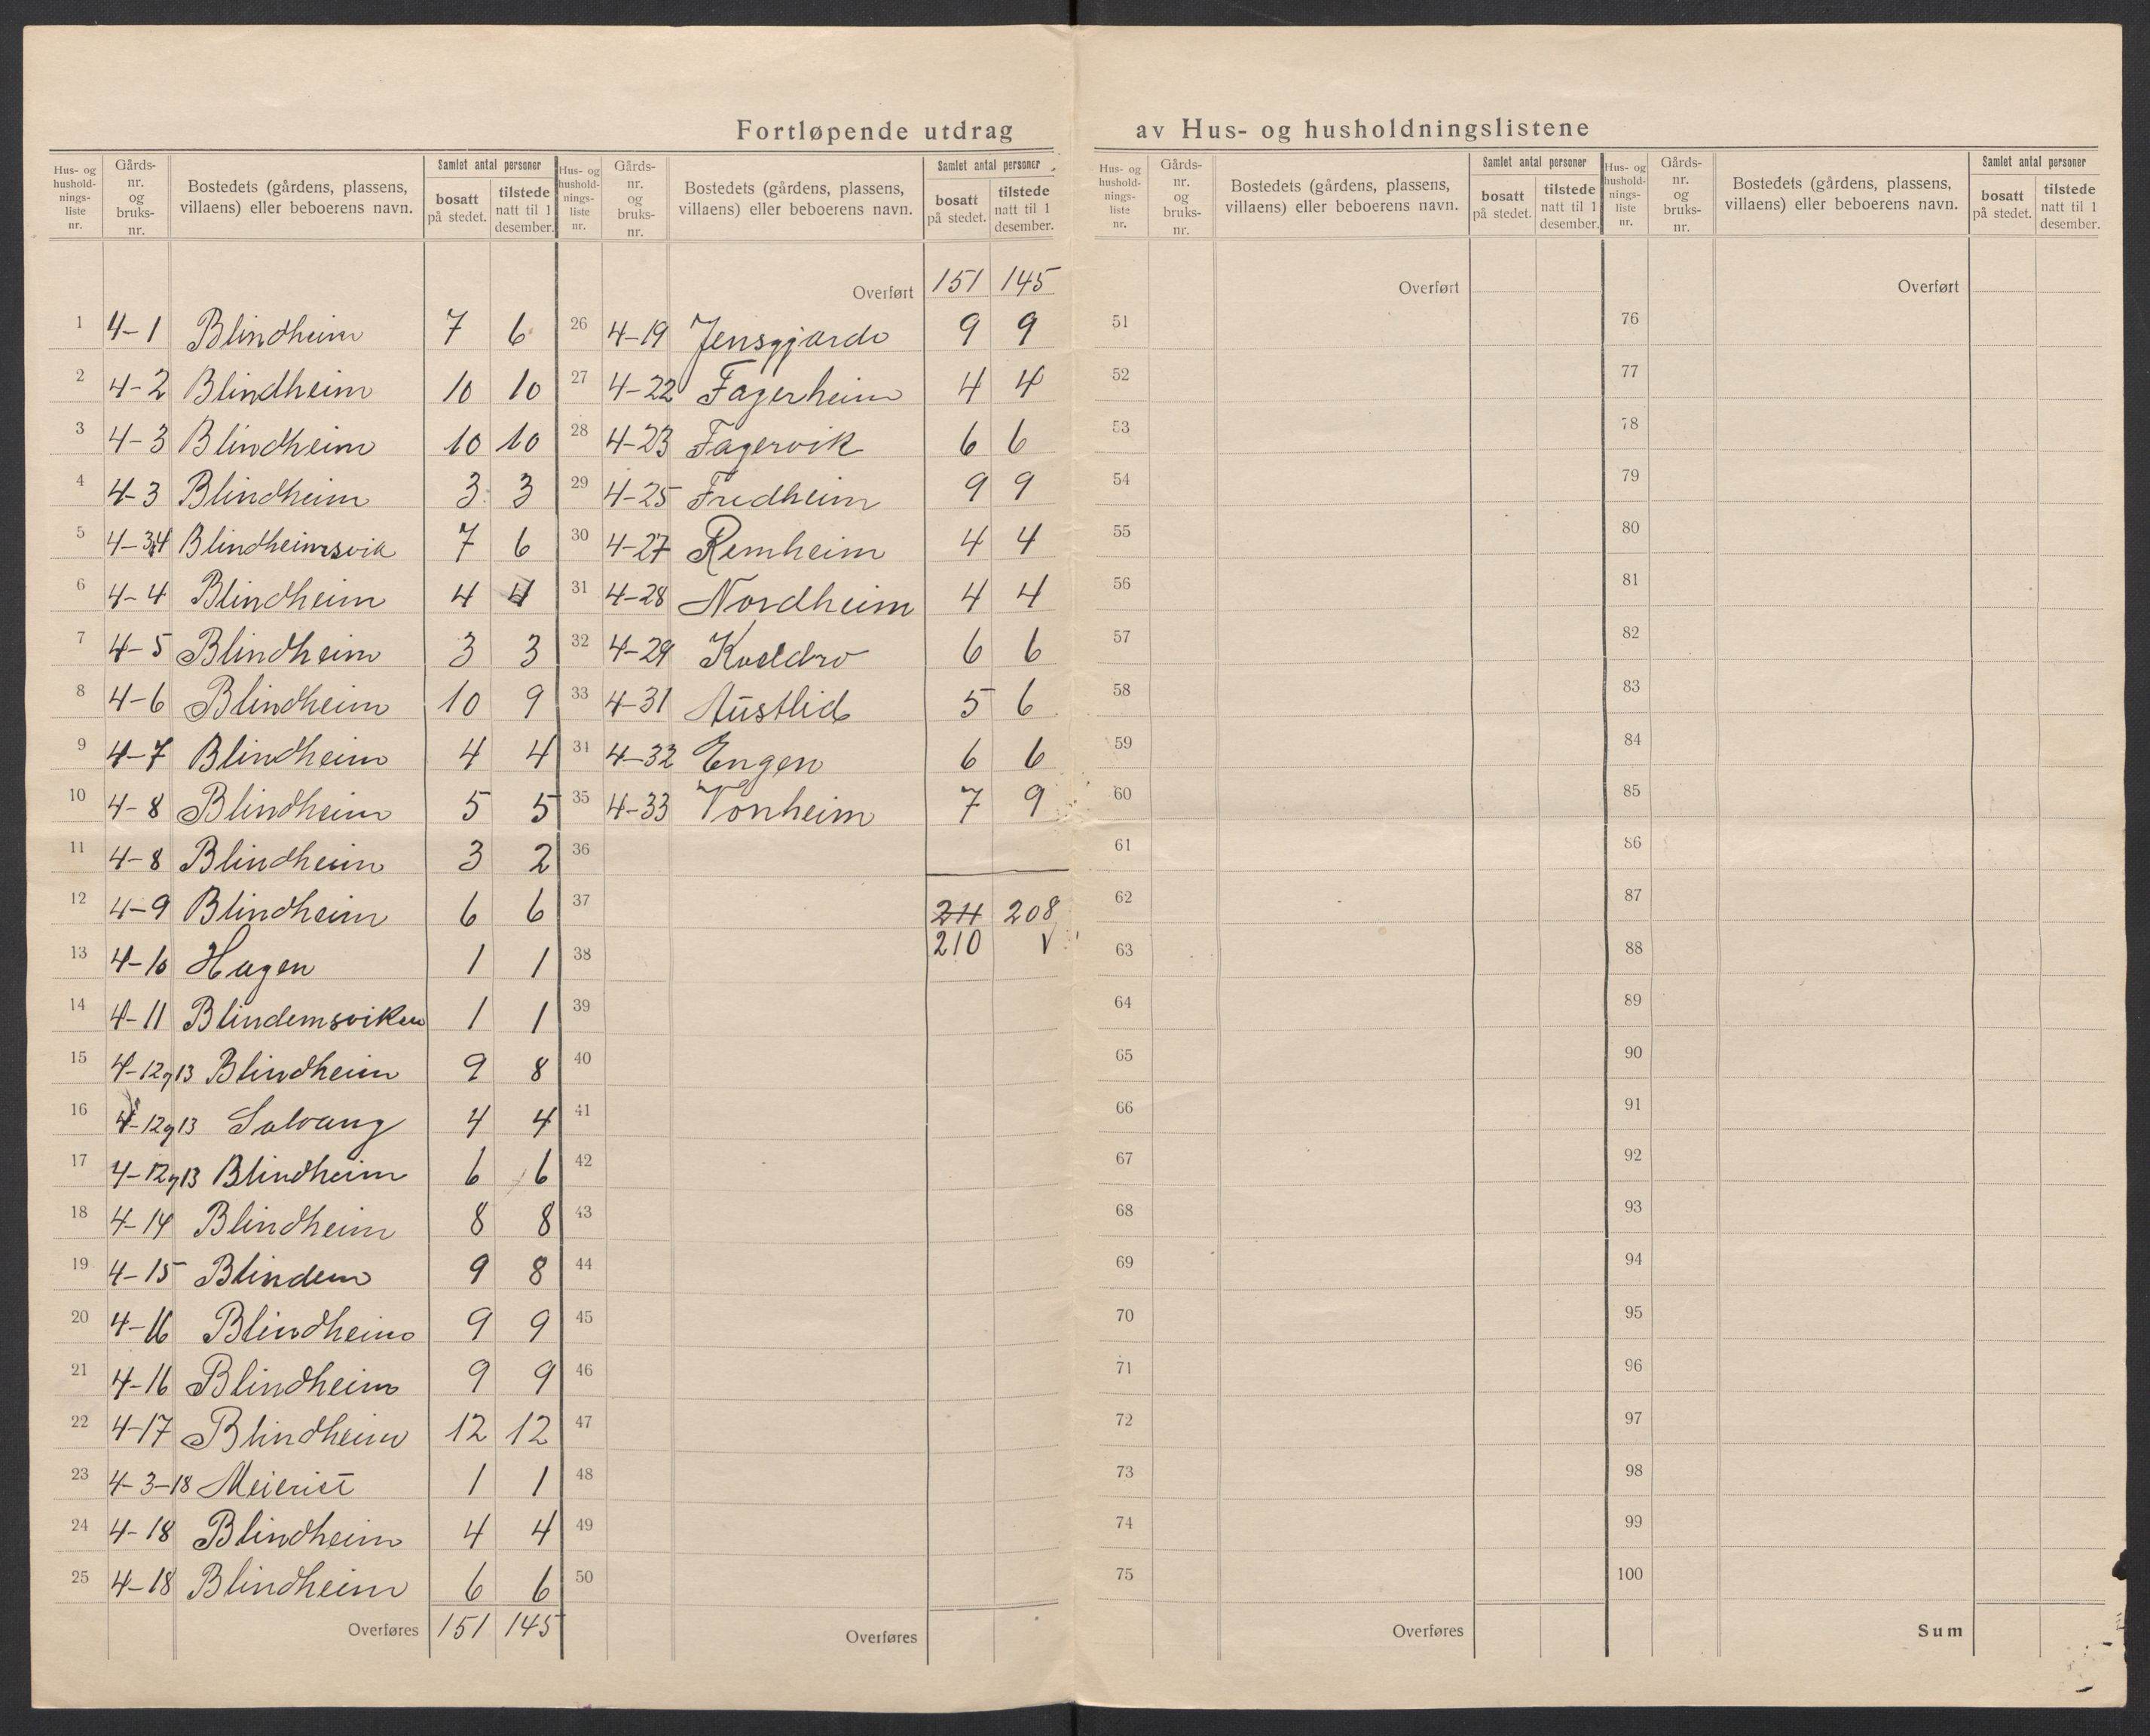 Fortløpende utdrag av Hus- og husholdningslistene
Hus- og hushold- nings- liste nr. Gårds- nr. og bruks- nr. Bostedets (gårdens, plassens, villaens) eller beboerens navn. Samlet antal personer bosatt på stedet. tilstede natt til 1 desember.
1 4-1 Blindheim 7 6
2 4-2 Blindheim 10 10
3 4-3 Blindheim 10 10
4 4-3 Blindheim 3 3
5 4-34 Blindheimsvik 7 6
6 4-4 Blindheim 4 4
7 4-5 Blindheim 3 3
8 4-6 Blindheim 10 9
9 4-7 Blindheim 4 4
10 4-8 Blindheim 5 5
11 4-8 Blindheim 3 2
12 4-9 Blindheim 6 6
13 4-10 Hagen 1 1
14 4-11 Blindemsviken 1 1
15 4-12g13 Blindheim 9 8
16 4-12g13 Solvang 4 4
17 4-12g13 Blindheim 6 6
18 4-14 Blindheim 8 8
19 4-15 Blindem 9 8
20 4-16 Blindheim 9 9
21 4-16 Blindheim 9 9
22 4-17 Blindheim 12 12
23 4-3-18 Meieriet 1 1
24 4-18 Blindheim 4 4
25 4-18 Blindheim 6 6
Overføres 151 145
Hus- og hushold- nings- liste nr. Gårds- nr. og bruks- nr. Bostedets (gårdens, plassens, villaens) eller beboerens navn. Samlet antal personer bosatt på stedet. tilstede natt til 1 desember.
Overført 151 145
26 4-19 Jensgjarde 9 9
27 4-22 Fagerheim 4 4
28 4-23 Fagervik 6 6
29 4-25 Fredheim 9 9
30 4-27 Remheim 4 4
31 4-28 Nordheim 4 4
32 4-29 Kveldro 6 6
33 4-31 Austlid 5 6
34 4-32 Engen 6 6
35 4-33 Vonheim 7 9
36
37 211 208
38 210 V
39
40
41
42
43
44
45
46
47
48
49
50
Overføres
Hus- og hushold- nings- liste nr. Gårds- nr. og bruks- nr. Bostedets (gårdens, plassens, villaens) eller beboerens navn. Samlet antal personer bosatt på stedet. tilstede natt til 1 desember.
Overført
51
52
53
54
55
56
57
58
59
60
61
62
63
64
65
66
67
68
69
70
71
72
73
74
75
Overføres
Hus- og hushold- nings- liste nr. Gårds- nr. og bruks- nr. Bostedets (gårdens, plassens, villaens) eller beboerens navn. Samlet antal personer bosatt på stedet. tilstede natt til 1 desember.
Overført
76
77
78
79
80
81
82
83
84
85
86
87
88
89
90
91
92
93
94
95
96
97
98
99
100
Sum